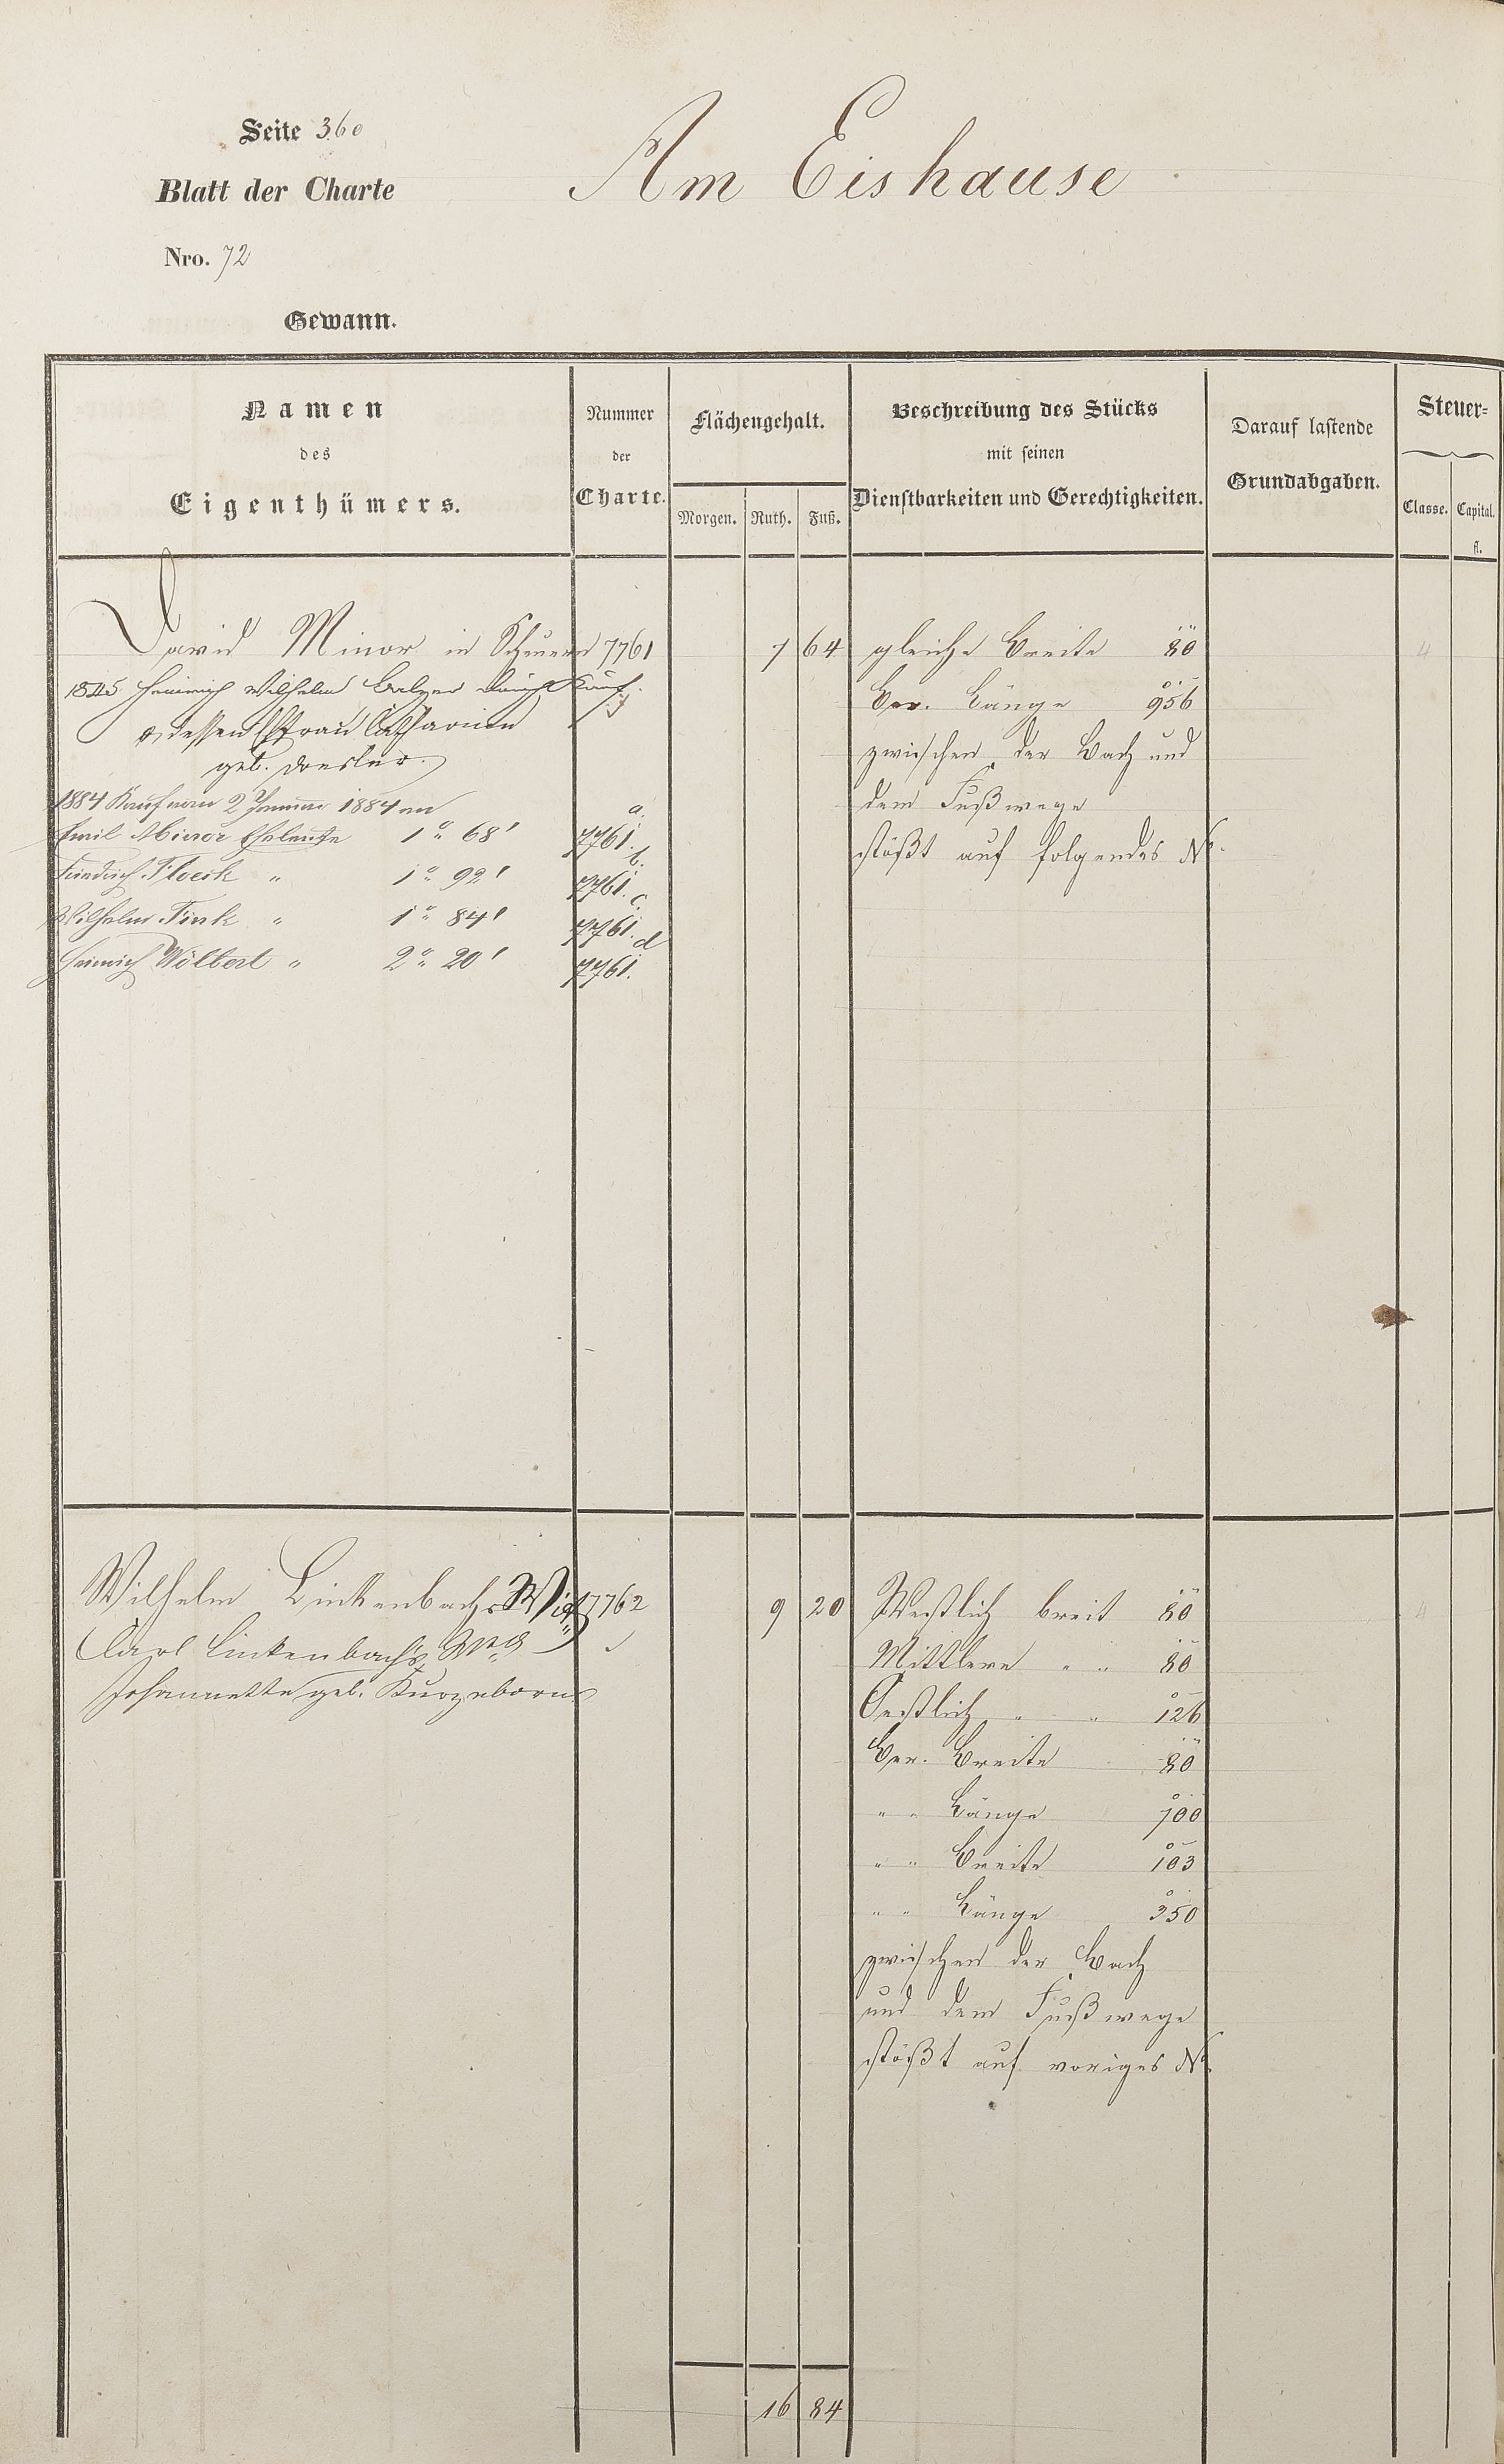 Seite 360
Am Eishause
Blatt der Charte
Nro. 72
Gewann.
Namen
des
Eigenthümers.
Nummer
der
Charte.
Flächengehalt.
Morgen. Ruth. Fuß.
Beschreibung des Stücks
mit seinen
Dienstbarkeiten und Gerechtigkeiten.
Darauf lastende
Grundabgaben.
Steuer-
Classe. Capital.
fl.
David Minor in Scheuern 7761 7 64 gleiche Breite 80
Heinrich Wilhelm Balzer durch Kauf.
dessen Ehfrau Catharina
geb.
1884 Kauf vom 2 Januar 1884 an
Emil Minor Eheleute 1° 68' 7761. a.
Friedrich Floeck " 1° 92' 7761. b.
Wilhelm Fink " 1° 84' 7761. c.
Heinrich Wölbert " 2° 20' 7761. d
Ber. Länge 956
zwischen der Bach und
dem Fußwege
stößt auf folgendes No.
4
Wilhelm Linkenbachs 7762 9 20 Westlich breit 80
Carl Linkenbach's
Johannette geb. Kurzenborn
Mittlere " " 80
Oestlich " " 126
Ber. Breite 80
" " Länge 700
" " Breite 103
" " Länge 350
zwischen der Bach
und dem Fußwege
stößt auf voriges No.
4
16 84